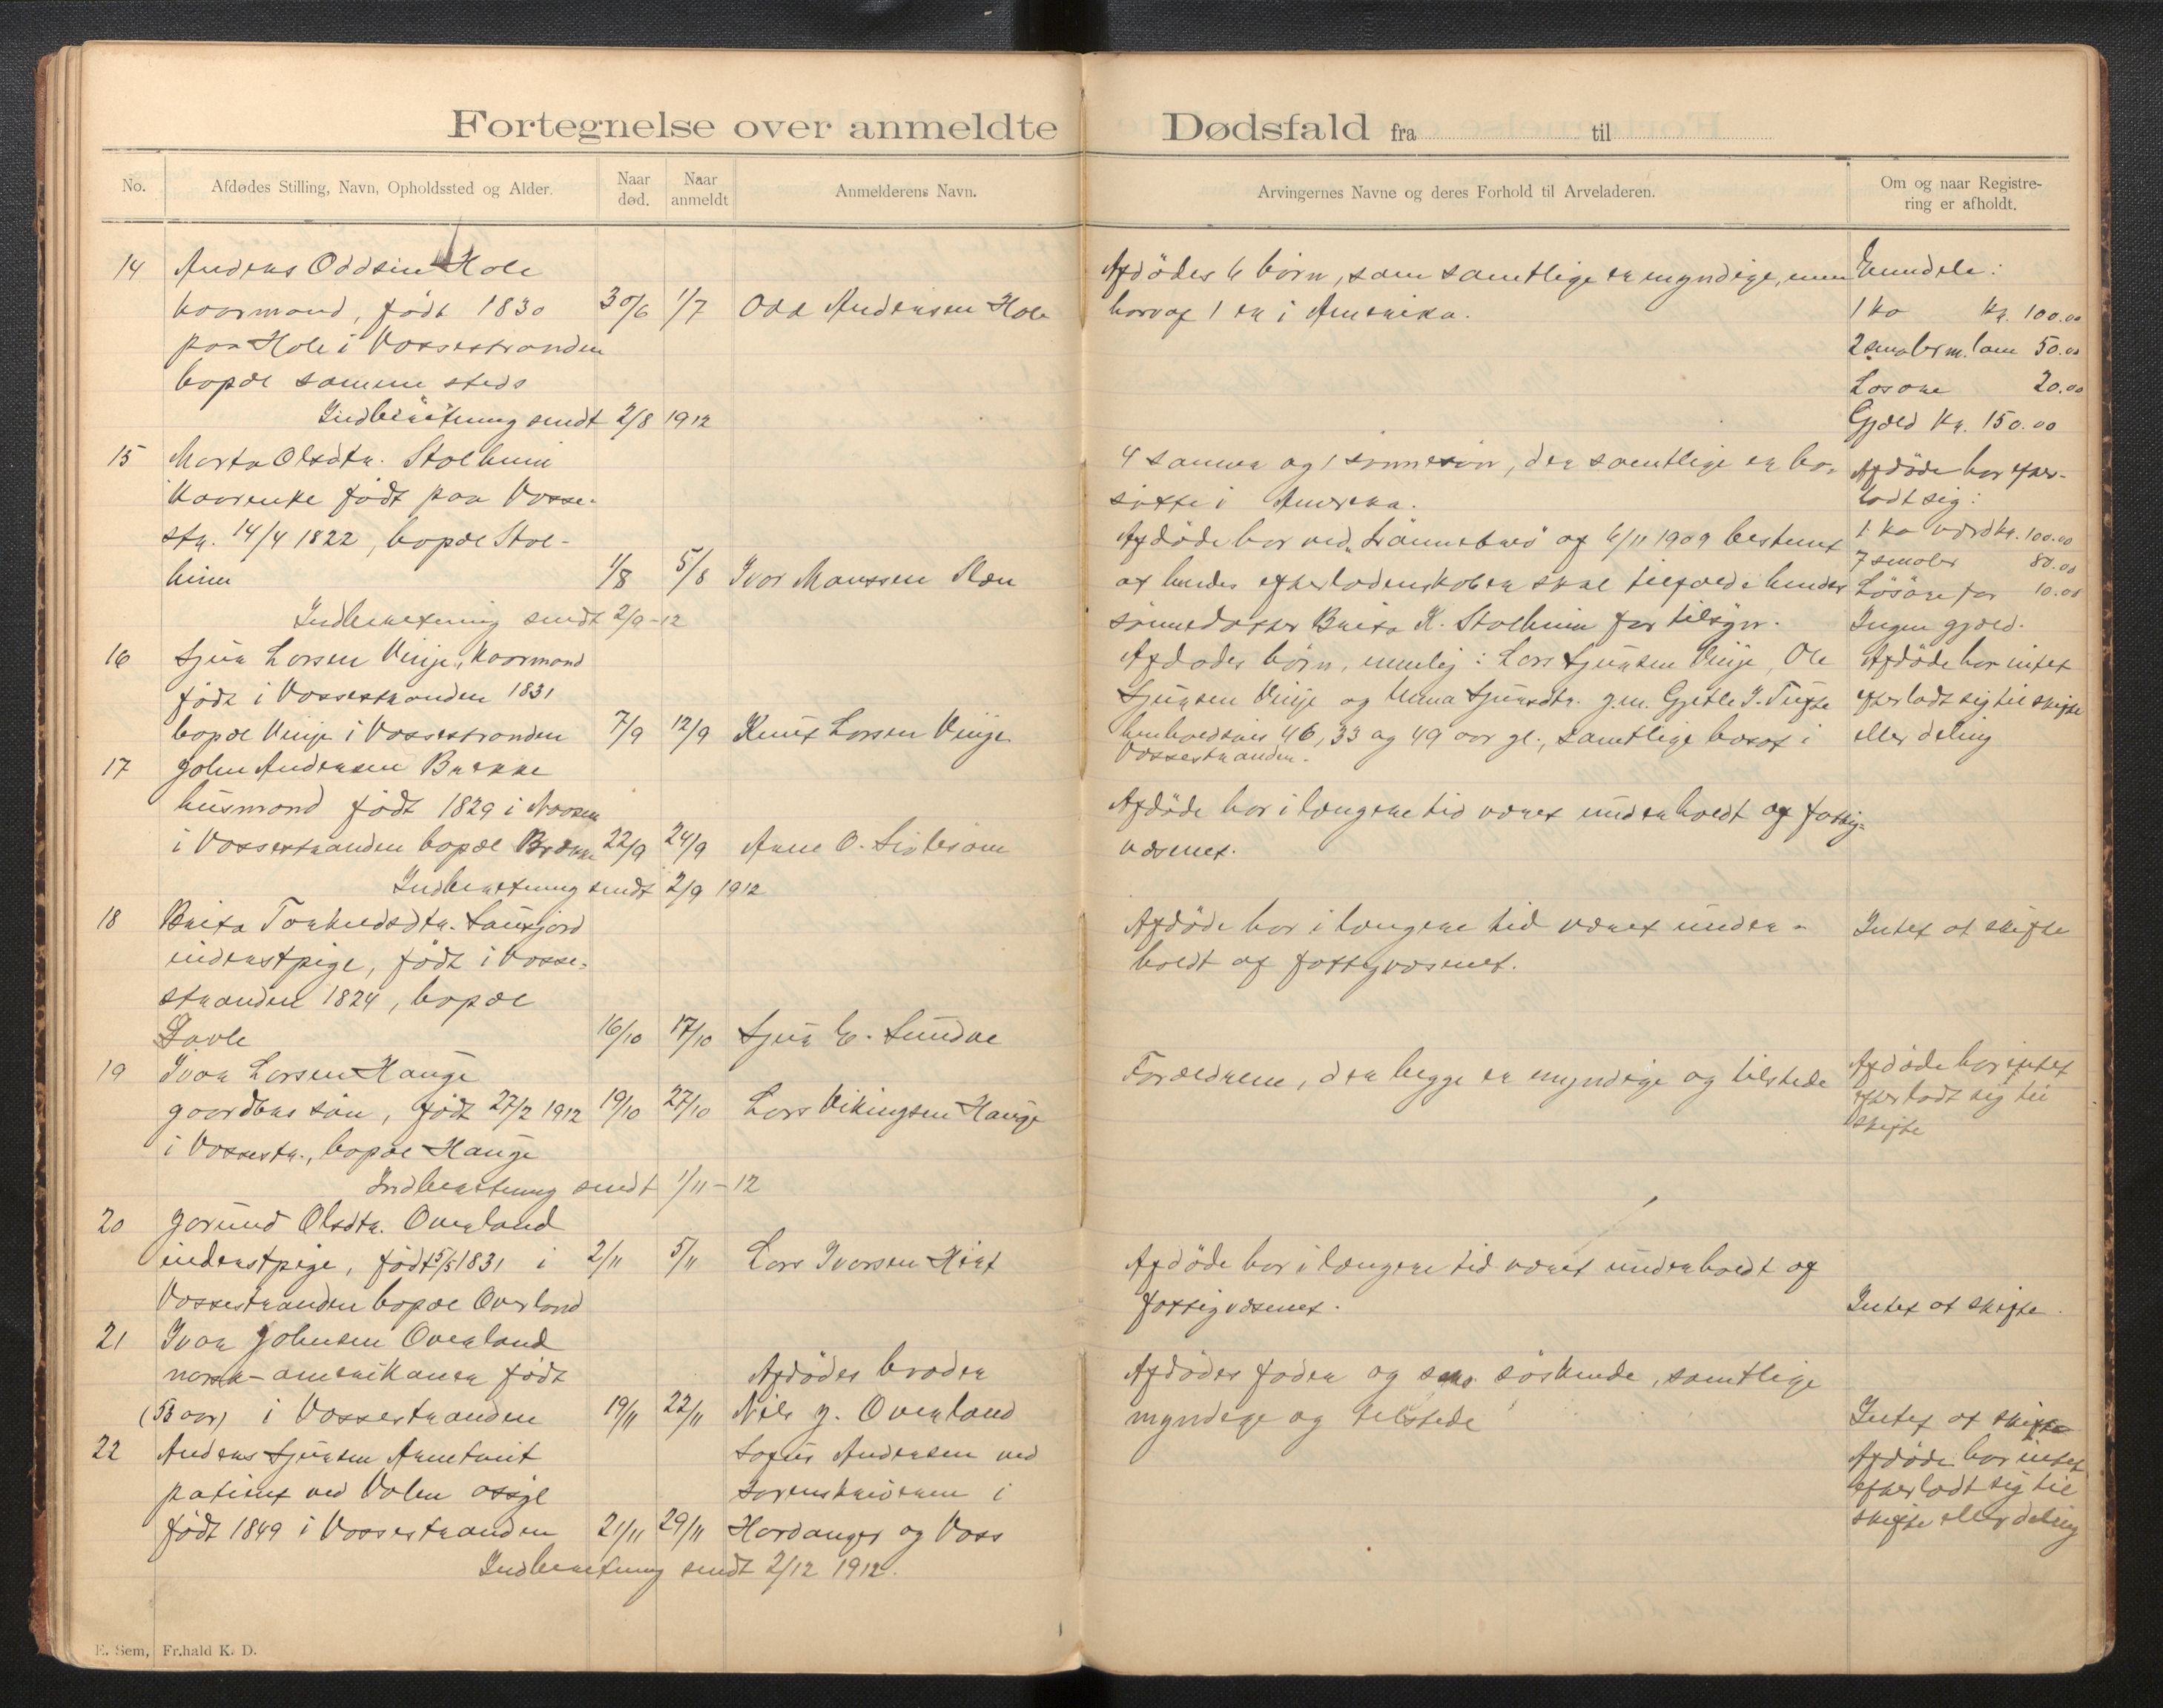 Fortegnelse over anmeldte Dødsfald fra til
No.
Afdødes Stilling, Navn, Opholdssted og Alder.
Naar død.
Naar anmeldt
Anmelderens Navn.
Arvingernes Navne og deres Forhold til Arveladeren.
Om og naar Registre-
ring er afholdt.
14 Anders Oddsen Hole
kaarmand, født 1830 30/6 1/7 Odd Andersen Hole
paa Hole i Vossestranden
bopæl samme steds
Indberetning sendt 2/8 1912
Afdödes 6 börn, som samtlige er myndige, men
horaf 1 er i Amerika.
Eiendele:
1 ko kr. 100.00
2 smaler m. lam 50.00
Lösöre 20.00
Gjæld kr. 150.00
15 Marta Olsdtr. Stalheim
Kaarenke født paa Vosse-
str. 14/4 1822, bopæl Stal-
heim 1/8 5/8 Ivar Monssen Slæn
Indberetning sendt 2/9-12
4 sönner og 1 sönnesön, der samtlige er bo-
satte i Amerika.
Afdöde har ved af 6/11 1909 bestemt
at hendes efterladenskaber skal tilfalde hendes
sönnedatter Brita K. Stalheim for tilsyn.
Afdöde har efter-
ladt sig:
1 ko værd kr. 100.00
7 smaler 80.00
Lösöre for 10.00
Ingen gjæld.
16 Sjur Larsen Vinje, kaarmand
født i Vossestranden 1831
bopæl Vinje i Vossestranden 7/9 12/9 Knut Larsen Vinje
Afdødes børn, nemlig: Lars Sjursen Vinje, Ole
Sjursen Vinje og Anna Sjursdtr. g.m. Gjetle I. Tufte
henholdsvis 46, 33 og 49 aar gl., samtlige bosat i
Vossestranden.
Afdöde har intet
efterladt sig til skifte
eller deling
17 John Andersen Brekke
husmand født 1829 i
i Vossestranden bopæl Brække 22/9 24/9 Anne O.
Indberetning sendt 2/9 1912
Afdöde har i længere tid været underholdt af fattig-
væsenet.
18 Brita Torkildsdtr.
inderstpige, født i Vosse-
stranden 1824, bopæl
16/10 17/10 Sjur E. Sundve
Afdöde har i længere tid været under-
holdt af fattigvæsenet.
Intet at skifte
19 Ivar Larsen Hauge
gaardbrs sön, født 27/2 1912 19/10 27/10 Lars Vikingsen Hauge
i Vossestr., bopæl Hauge
Indberetning sendt 1/11-12
Forældrene, der begge er myndige og tilstede
Afdöde har intet
efterladt sig til
skifte
20 Jorund Olsdtr. Overland
inderstpige, født 15/5 1831 i 2/11 5/11 Lars Ivarsen
Vossestranden bopæl Overland
Afdöde har i længere tid været underholdt af
fattigvæsenet.
Intet at skifte.
21 Ivar Johnsen Overland
norsk-amerikaner født
(53 aar) i Vossestranden 19/11 22/11
Afdödes broder
Nils J. Overland
Afdödes fader og söskende, samtlige
myndige og tilstede
Intet at skifte
22 Anders Sjursen Armtveit
patient ved Valen asyl
født 1849 i Vossestranden 21/11 29/11
Sofus Andersen ved
sorenskriveren i
Hardanger og Voss
Indberetning sendt 2/12 1912.
Afdöde har intet
efterladt sig til
skifte eller deling
E. Sem, Fr.hald K. D.